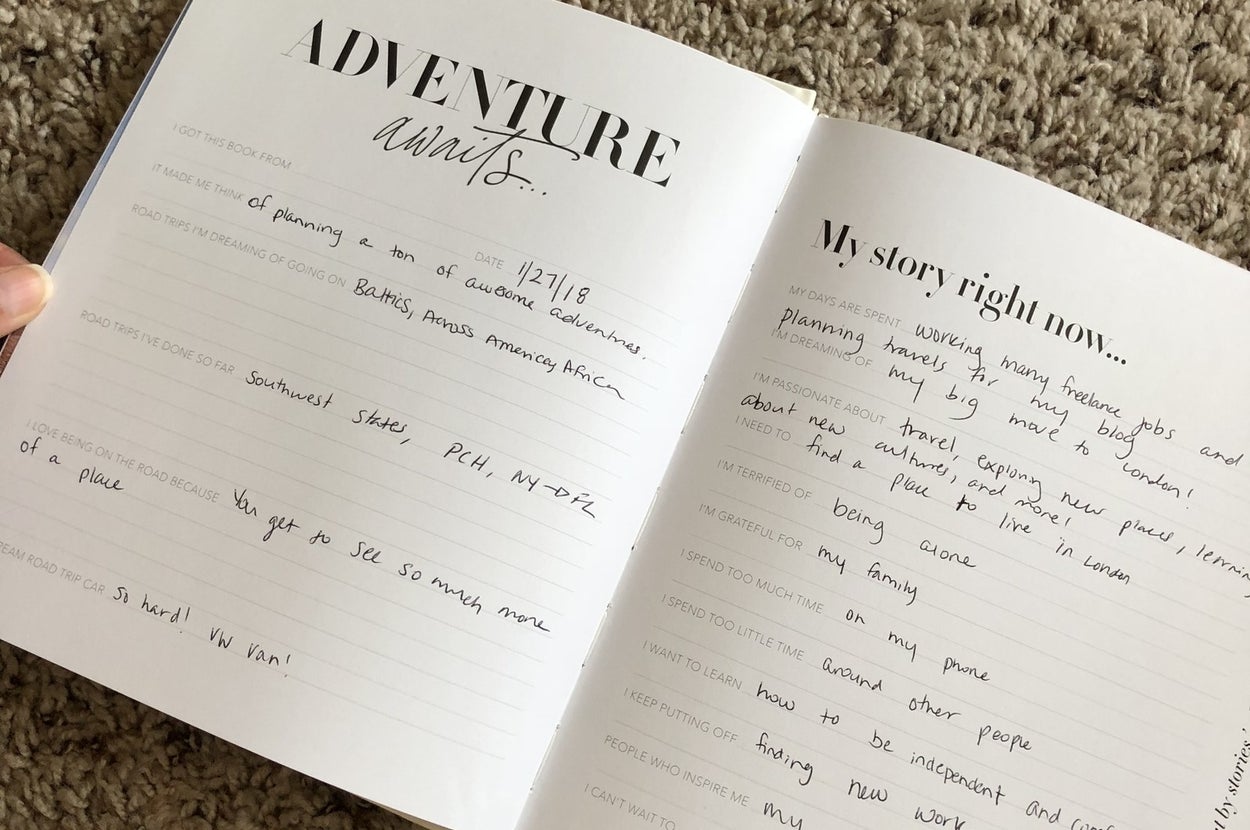 ADVENTURE
awaits...
I GOT THIS BOOK FROM
DATE 1/27/18
IT MADE ME THINK of planning a ton of awesome adventures.
ROAD TRIPS I'M DREAMING OF GOING ON Baltics, Across America, Africa
ROAD TRIPS I'VE DONE SO FAR Southwest states, PCH, NY→DFL
I LOVE BEING ON THE ROAD BECAUSE You get to see so much more
of a place
REAM ROAD TRIP CAR So hard! VW Van!
My story right now...
MY DAYS ARE SPENT working many freelance jobs and
planning travels for my blog
I'M DREAMING OF my big move to London!
I'M PASSIONATE ABOUT travel, exploring new places, learning
about new cultures, and more!
I NEED TO find a place to live in London
I'M TERRIFIED OF being alone
I'M GRATEFUL FOR my family
I SPEND TOO MUCH TIME on my phone
I SPEND TOO LITTLE TIME around other people
I WANT TO LEARN how to be independent and
I KEEP PUTTING OFF finding new work
PEOPLE WHO INSPIRE ME my
I CAN'T WAIT TO
by stories